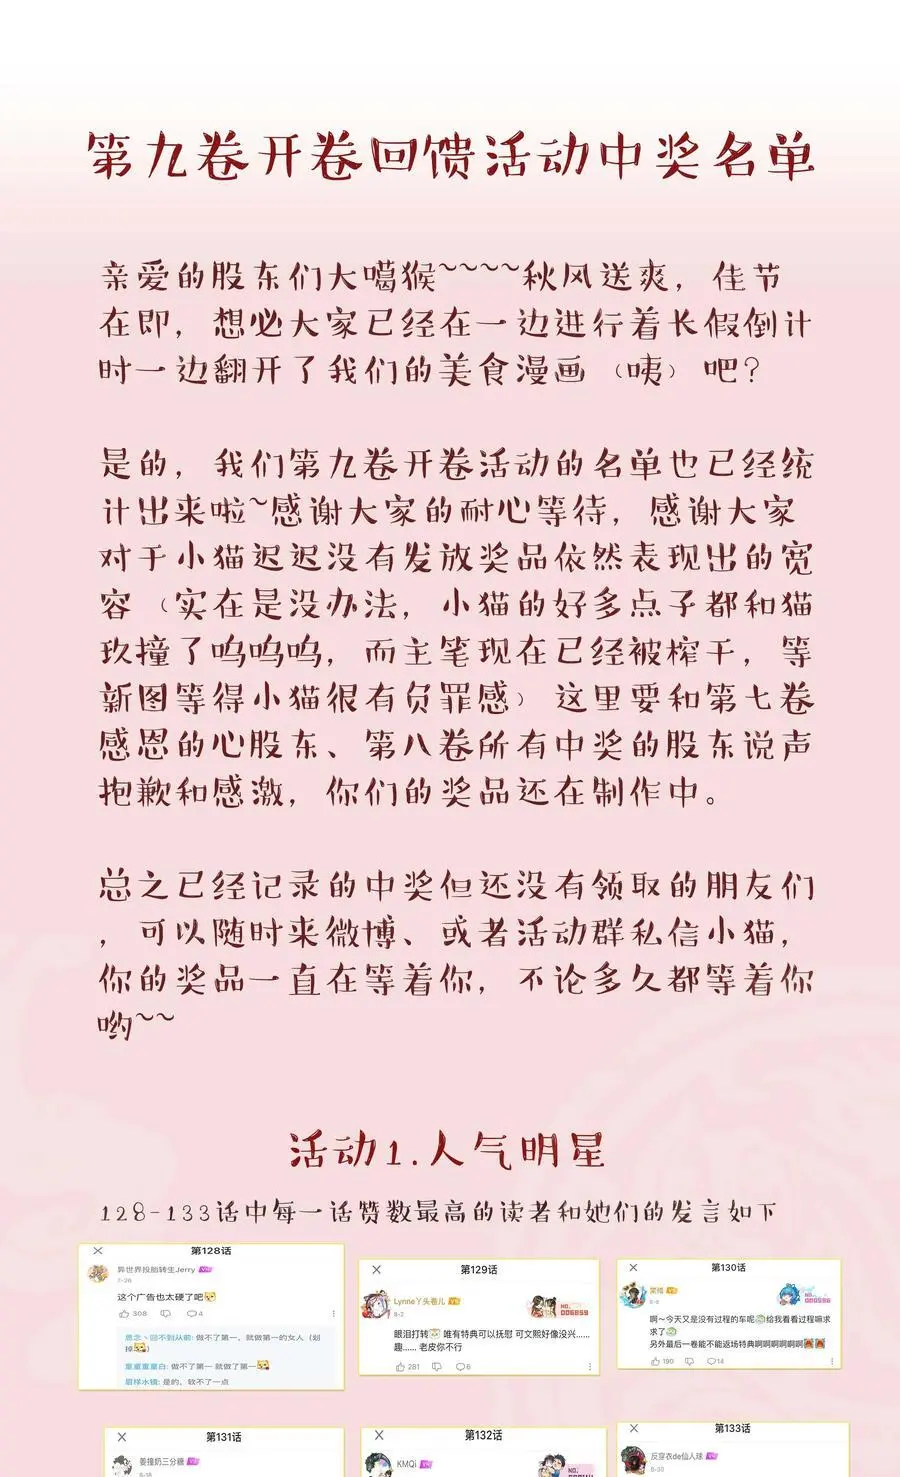 第九卷开卷回馈活动中奖名单
亲爱的股东们大噶猴~~~~秋风送爽，佳节
在即，想必大家已经在一边进行着长假倒计
时一边翻开了我们的美食漫画（咦）吧？
是的，我们第九卷开卷活动的名单也已经统
计出来啦~感谢大家的耐心等待，感谢大家
对于小猫迟迟没有发放奖品依然表现出的宽
容（实在是没办法，小猫的好多点子都和猫
玖撞了呜呜呜，而主笔现在已经被榨干，等
新图等得小猫很有负罪感）这里要和第七卷
感恩的心股东、第八卷所有中奖的股东说声
抱歉和感激，你们的奖品还在制作中。
总之已经记录的中奖但还没有领取的朋友们
，可以随时来微博、或者活动群私信小猫，
你的奖品一直在等着你，不论多久都等着你
哟~~
活动1.人气明星
128-133话中每一话赞数最高的读者和她们的发言如下
第128话
异世界投胎转生Jerry
7-26
这个广告也太硬了吧
308
4
思念丶回不到从前: 做不了第一，就做第一的女人（划
掉
重重重重白: 做不了第一 就做了第一
眉样水镜: 是的，软不了一点
第129话
Lynne丫头卷儿
8-2
NO.
006859
眼泪打转 唯有特典可以抚慰 可文熙好像没兴……
趣…… 老皮你不行
281
6
第130话
NO.
000596
啊～今天又是没有过程的车呢 给我看看过程嘛求
求了
另外最后一卷能不能返场特典啊啊啊啊啊啊
190
14
第131话
姜撞奶三分糖
第132话
KMQi
NO.
第133话
反穿衣de仙人球